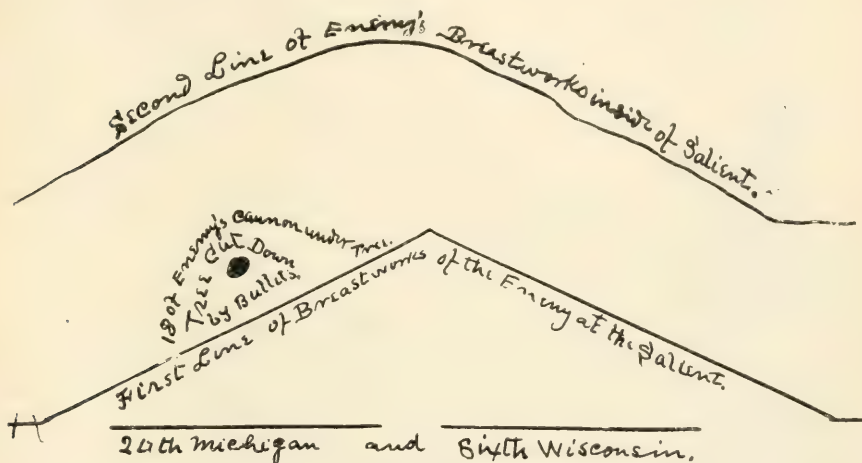 Second Line of Enemy's Breastworks inside of Salient.
18 of Enemy's cannon under Tree.
TREE Cut Down
by Bullets.
First Line of Breastworks of the Enemy at the Salient.
24th Michigan and Sixth Wisconsin.